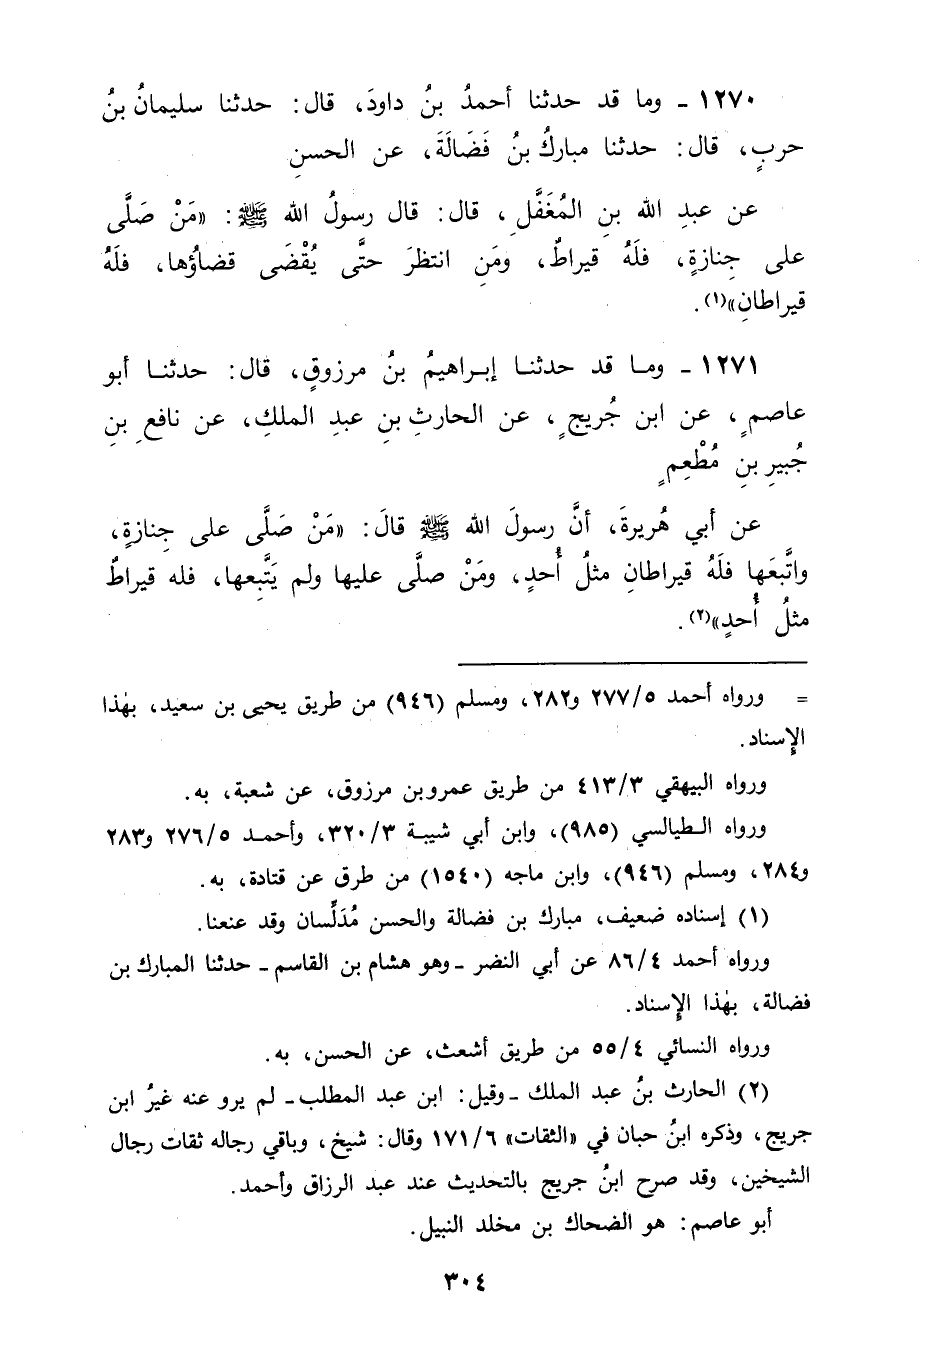 ١٢٧٠ ـ وما قد حدثنا أحمدُ بنُ داودَ، قال: حدثنا سليمانُ بنُ
حربٍ، قال: حدثنا مباركُ بنُ فَضَالَةَ، عن الحسنِ
عن عبدِ الله بنِ المُغَفَّلِ، قال: قال رسولُ الله ﷺ: «مَنْ صَلَّى
على جِنازةٍ، فلَهُ قيراطٌ، ومَنِ انتظرَ حتَّى يُقْضَى قضاؤُها، فلَهُ
قيراطانِ»(١).
١٢٧١ ـ وما قد حدثنا إبراهيمُ بنُ مرزوقٍ، قال: حدثنا أبو
عاصمٍ، عن ابن جُريجٍ، عن الحارثِ بنِ عبدِ الملكِ، عن نافعِ بنِ
جُبيرِ بنِ مُطْعِمٍ
عن أبي هُريرةَ، أنَّ رسولَ الله ﷺ قالَ: «مَنْ صَلَّى على جِنازةٍ،
واتَّبعَها فلَهُ قيراطانِ مثلُ أُحدٍ، ومَنْ صلَّى عليها ولم يَتَّبِعها، فله قيراطٌ
مثلُ أُحدٍ»(٢).
= ورواه أحمد ٢٧٧/٥ و٢٨٢، ومسلم (٩٤٦) من طريق يحيى بن سعيد، بهٰذا
الإِسناد.
ورواه البيهقي ٤١٣/٣ من طريق عمرو بن مرزوق، عن شعبة، به.
ورواه الطيالسي (٩٨٥)، وابن أبي شيبة ٣٢٠/٣، وأحمد ٢٧٦/٥ و٢٨٣
و٢٨٤، ومسلم (٩٤٦)، وابن ماجه (١٥٤٠) من طرق عن قتادة، به.
(١) إسناده ضعيف، مبارك بن فضالة والحسن مُدَلِّسان وقد عنعنا.
ورواه أحمد ٨٦/٤ عن أبي النضر ـ وهو هشام بن القاسم ـ حدثنا المبارك بن
فضالة، بهٰذا الإِسناد.
ورواه النسائي ٥٥/٤ من طريق أشعث، عن الحسن، به.
(٢) الحارث بنُ عبد الملك ـ وقيل: ابن عبد المطلب ـ لم يرو عنه غيرُ ابن
جريج، وذكره ابنُ حبان في «الثقات» ١٧١/٦ وقال: شيخ، وباقي رجاله ثقات رجال
الشيخين، وقد صرح ابنُ جريج بالتحديث عند عبد الرزاق وأحمد.
أبو عاصم: هو الضحاك بن مخلد النبيل.
٣٠٤